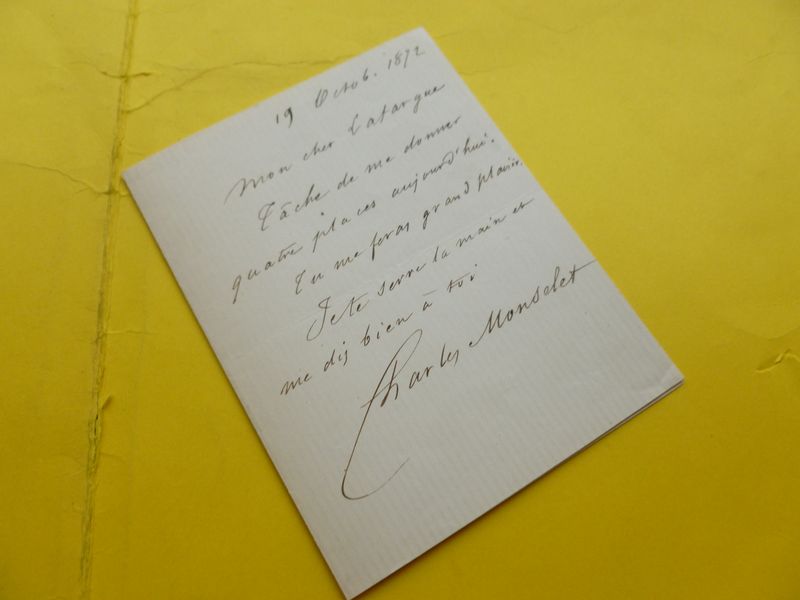 19 Octob. 1872
Mon cher Lafargue
Tâche de me donner
quatre places aujourd'hui.
Tu me feras grand plaisir.
Je te serre la main et
me dis bien à toi
Charles Monselet